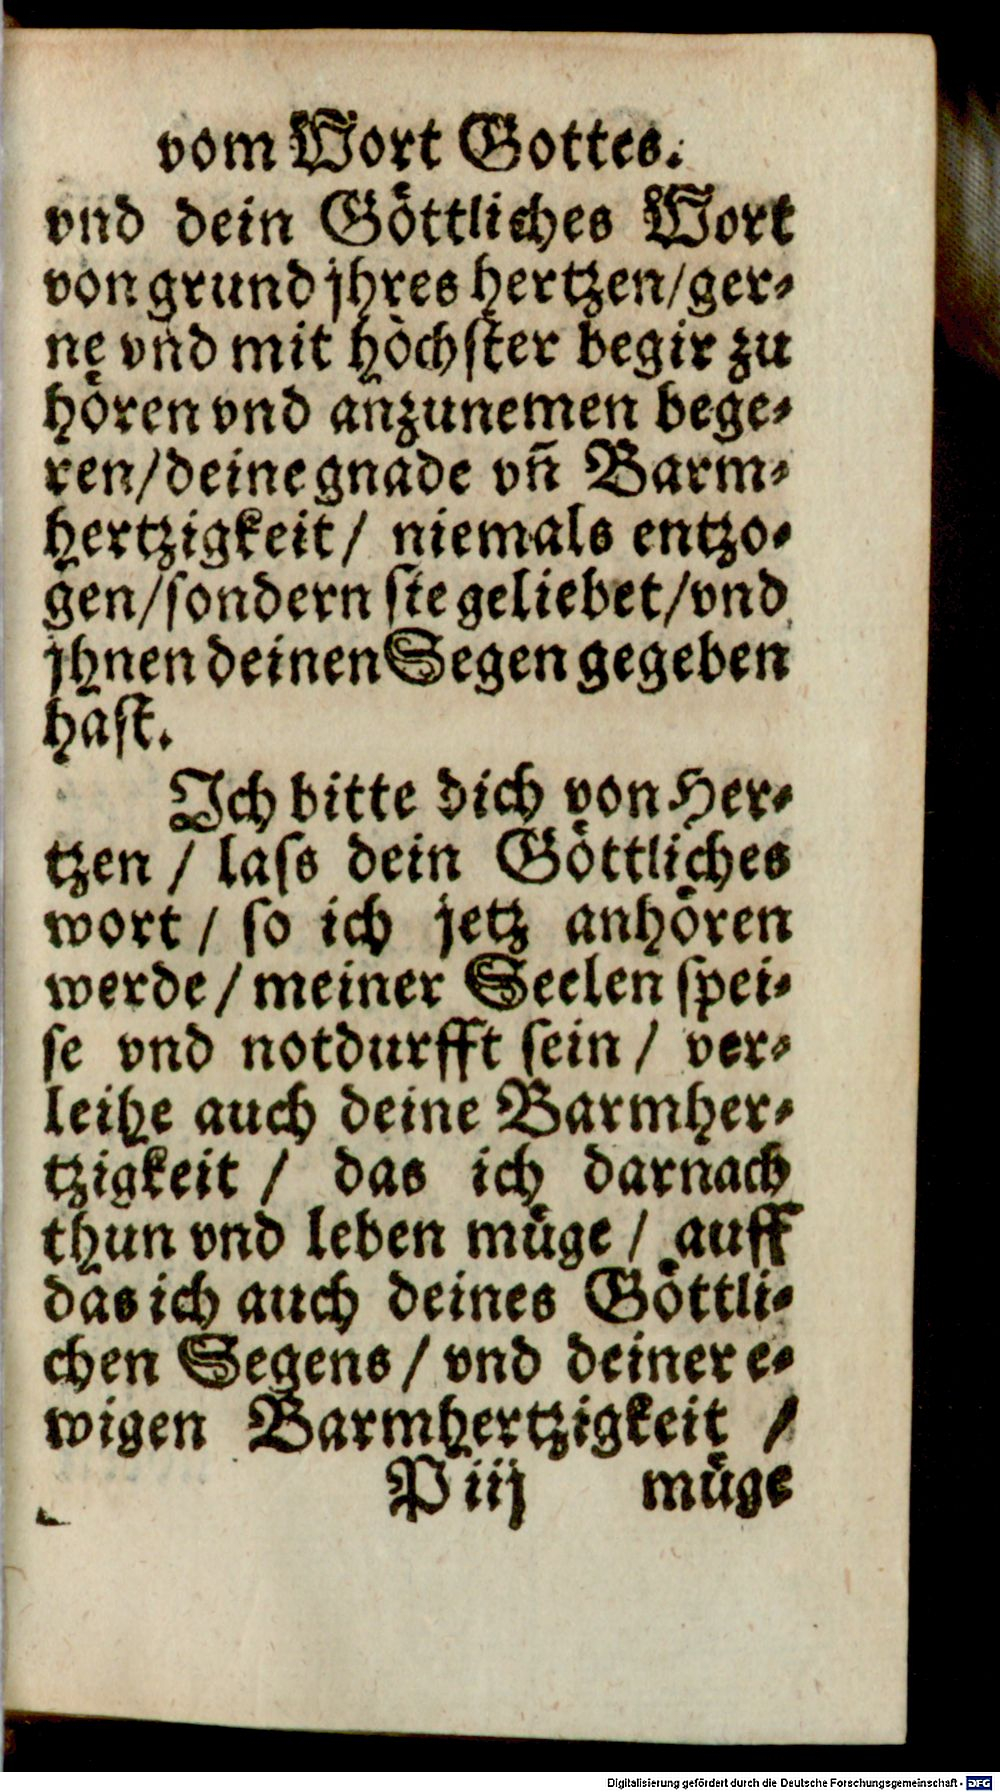 vom Wort Gottes.
vnd dein Göttliches Wort
von grund jhres hertzen/ger-
ne vnd mit höchster begir zu
hören vnd anzunemen bege-
ren/deine gnade vn̄ Barm-
hertzigkeit/ niemals entzo-
gen/sondern sie geliebet/vnd
jhnen deinen Segen gegeben
hast.
Ich bitte dich von Her-
tzen / lass dein Göttliches
wort / so ich jetz anhören
werde / meiner Seelen spei-
se vnd notdurfft sein / ver-
leihe auch deine Barmher-
tzigkeit / das ich darnach
thun vnd leben müge / auff
das ich auch deines Göttli-
chen Segens / vnd deiner e-
wigen Barmhertzigkeit /
P iij müge
Digitalisierung gefördert durch die Deutsche Forschungsgemeinschaft - DFG